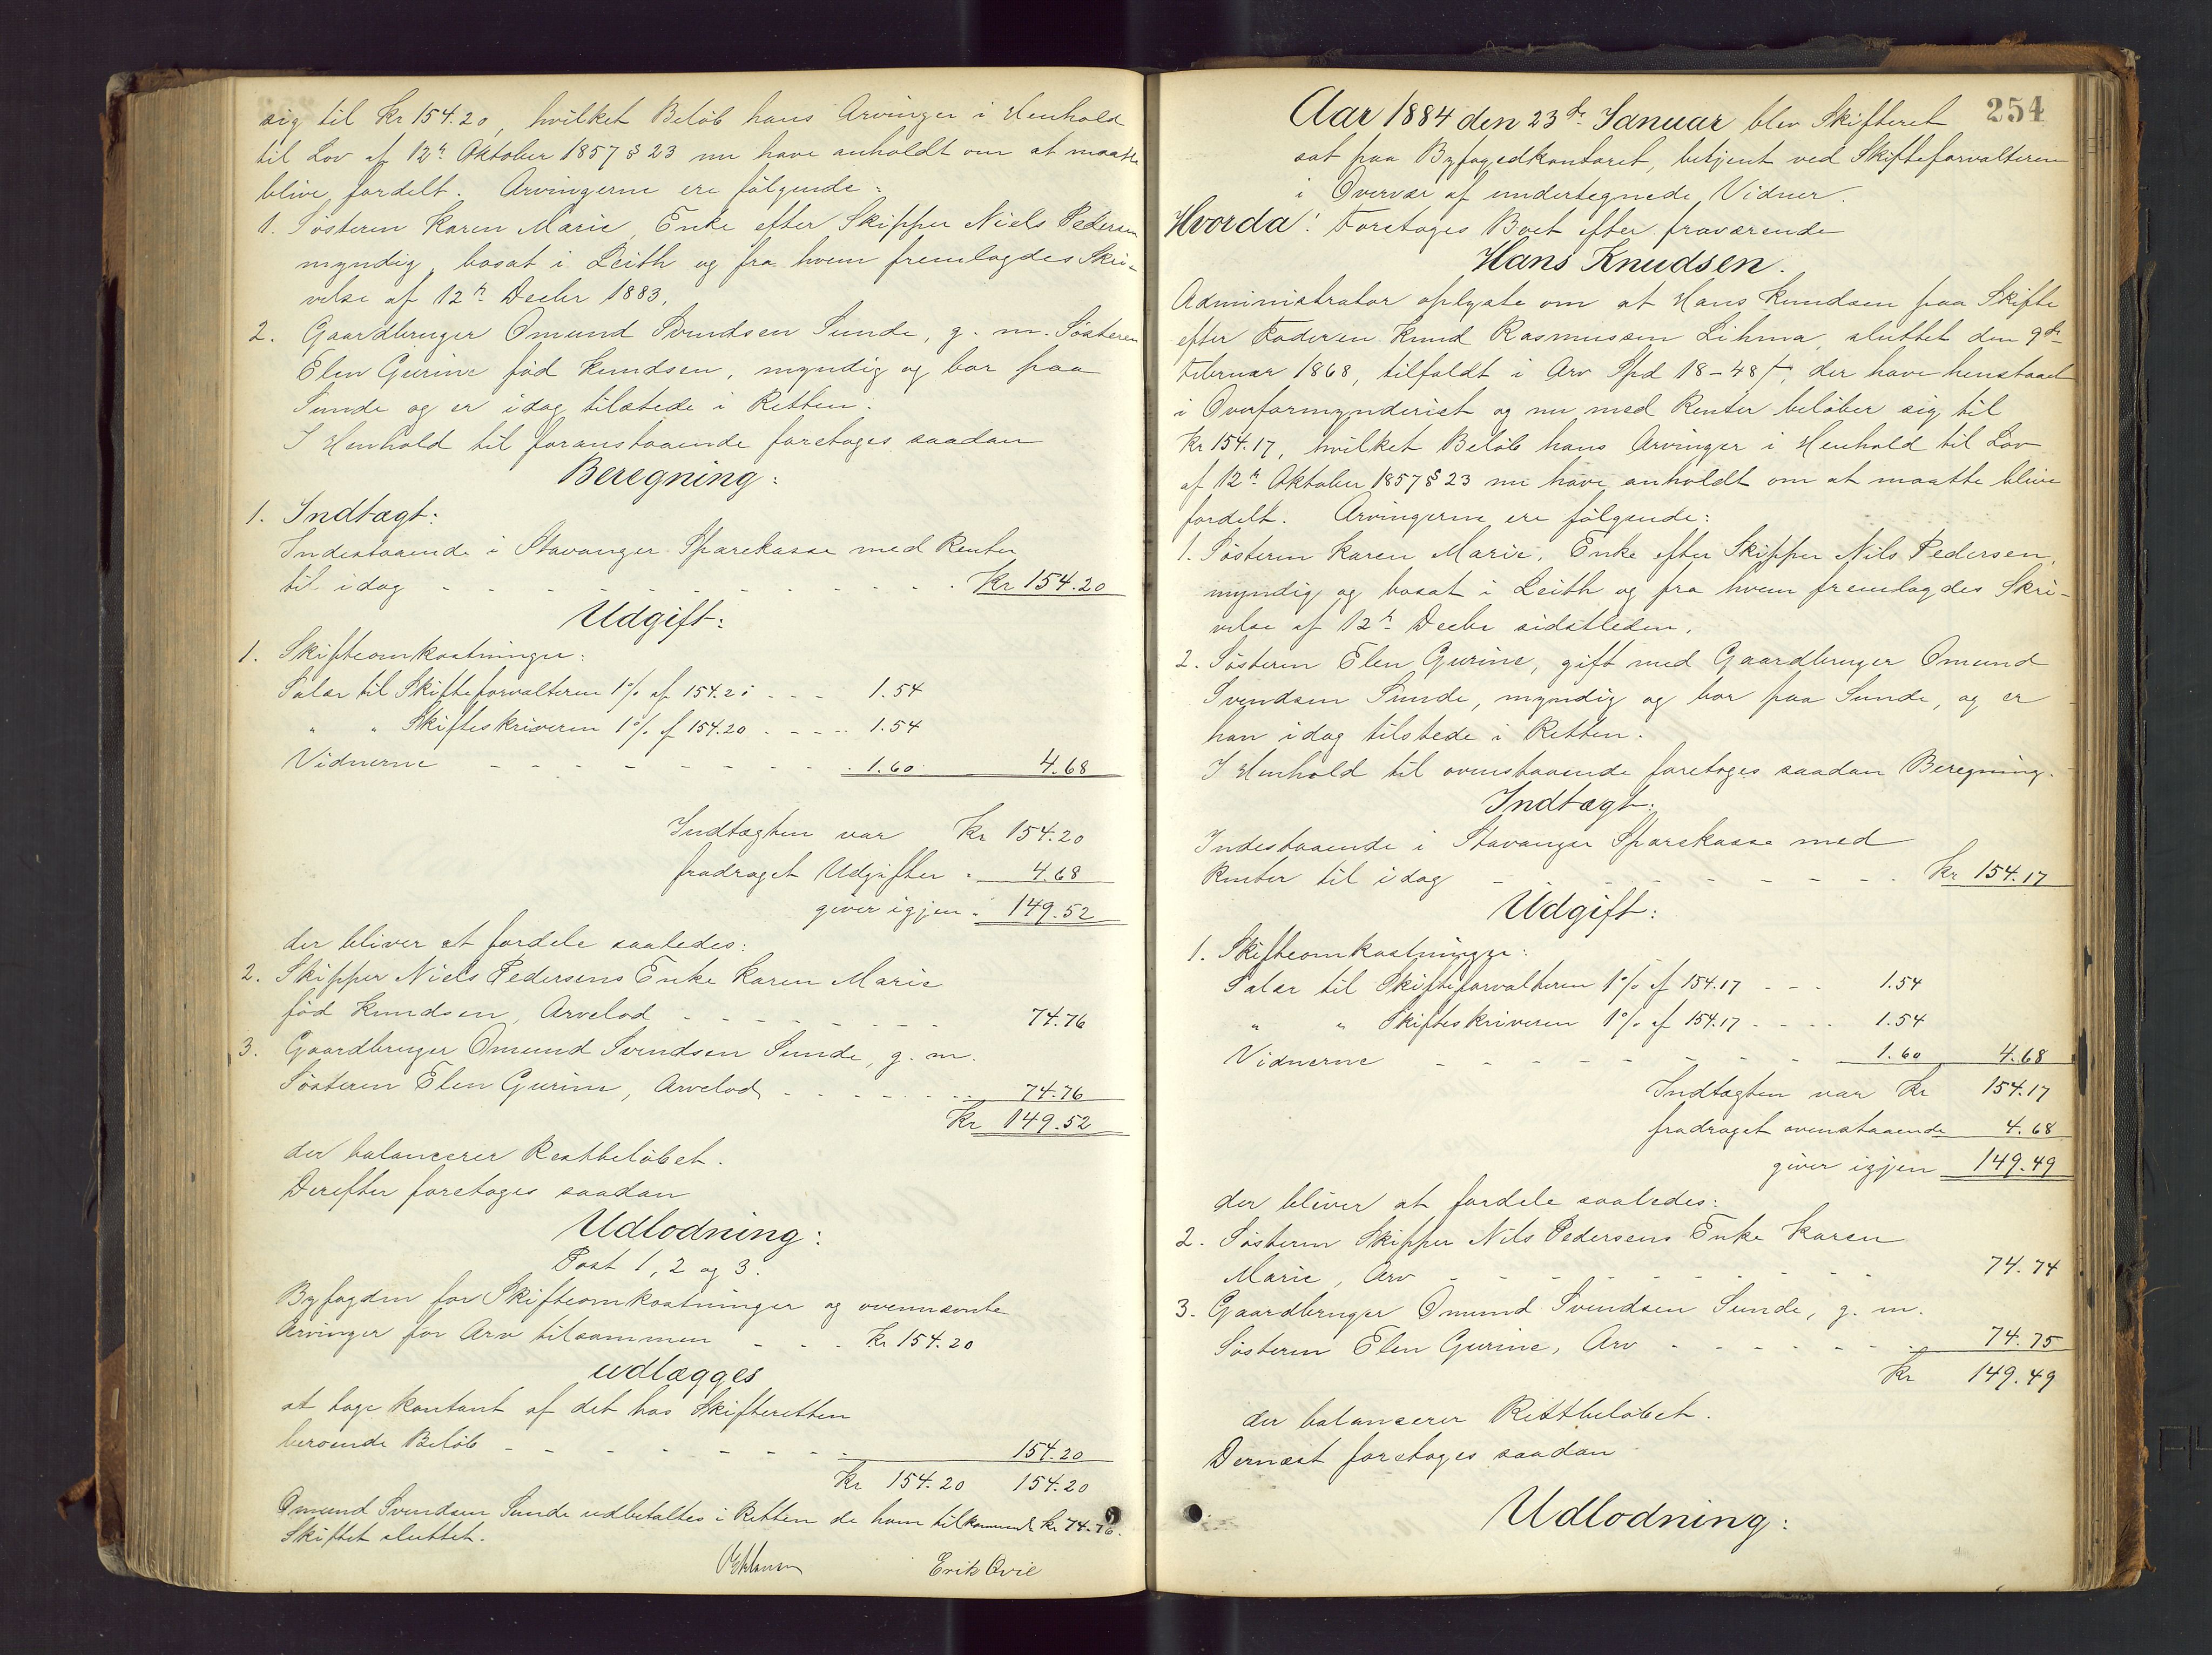 sig til Kr 154.20, hvilket Beløb hans Arvinger i Henhold
til Lov af 12te Oktober 1857 § 23 nu have anholdt om at maatte
blive fordelt. Arvingerne ere følgende:
1. Søsteren Karen Marie, Enke efter Skipper Niels Pedersen
myndig, bosat i Leith og fra hvem fremlagdes Skri-
velse af 12te Decbr 1883.
2. Gaardbruger Omund Svendsen Sunde, g. m. Søsteren
Elen Gurine fød Knudsen, myndig og bor paa
Sunde og er idag tilstede i Retten.
I Henhold til foranstaaende foretoges saadan
Beregning:
1. Indtægt:
Indestaaende i Stavanger Sparekasse med Renter
til idag - - - - - - - - - - Kr 154.20
Udgift:
1. Skifteomkostninger:
Salær til Skifteforvalteren 1% af 154.20 - - - 1.54
" " Skifteskriveren 1% af 154.20 - - - - 1.54
Vidnerne - - - - - - - - 1.60 4.68
Indtægten var Kr 154.20
fradraget Udgifter " 4.68
giver igjen " 149.52
der bliver at fordele saaledes:
2. Skipper Niels Pedersens Enke Karen Marie
fød Knudsen, Arvelod - - - - - - - - 74.76
3. Gaardbruger Omund Svendsen Sunde, g. m.
Søsteren Elen Gurine, Arvelod - - - - - - 74.76
Kr 149.52
der balancerer Restbeløbet.
Derefter foretoges saadan
Udlodning:
Post 1, 2 og 3.
Byfogden for Skifteomkostninger og ovennævnte
Arvinger for Arv tilsammen - - - Kr 154.20
udlægges
at tage kontant af det hos Skifteretten
beroende Beløb - - - - - - - - 154.20
Kr 154.20 154.20
Omund Svendsen Sunde udbetaltes i Retten de ham tilkommende Kr 74.76.
Skiftet sluttet.
Erik Qvie
254
Aar 1884 den 23de Januar blev Skifteret
sat paa Byfogedkontoret, betjent ved Skifteforvalteren
i Overvær af undertegnede Vidner.
Hvorda: Foretoges Boet efter fraværende
Hans Knudsen.
Administrator oplyste om at Hans Knudsen paa Skifte
efter Faderen Knud Rasmussen Lihma, sluttet den 9de
Februar 1868, tilfaldt i Arv Spd 18-48 ß, der have henstaaet
i Overformynderiet og nu med Renter beløber sig til
Kr 154.17, hvilket Beløb hans Arvinger i Henhold til Lov
af 12te Oktober 1857 § 23 nu have anholdt om at maatte blive
fordelt. Arvingerne ere følgende:
1. Søsteren Karen Marie, Enke efter Skipper Nils Pedersen,
myndig og bosat i Leith og fra hvem fremlagdes Skri-
velse af 12te Decbr sidstleden.
2. Søsteren Elen Gurine, gift med Gaardbruger Omund
Svendsen Sunde, myndig og bor paa Sunde, og er
han idag tilstede i Retten.
I Henhold til ovenstaaende foretoges saadan Beregning.
Indtægt:
Indestaaende i Stavanger Sparekasse med
Renter til idag - - - - - - - - Kr 154.17
Udgift:
1. Skifteomkostninger:
Salær til Skifteforvalteren 1% af 154.17 - - - 1.54
" " Skifteskriveren 1% af 154.17 - - - - 1.54
Vidnerne - - - - - - - - 1.60 4.68
Indtægten var Kr 154.17
fradraget ovenstaaende 4.68
giver igjen 149.49
der bliver at fordele saaledes:
2. Søsteren Skipper Nils Pedersens Enke Karen
Marie, Arv - - - - - - - - 74.74
3. Gaardbruger Omund Svendsen Sunde, g. m.
Søsteren Elen Gurine, Arv - - - - - - 74.75
Kr 149.49
der balancerer Restbeløbet.
Dernæst foretoges saadan
Udlodning: